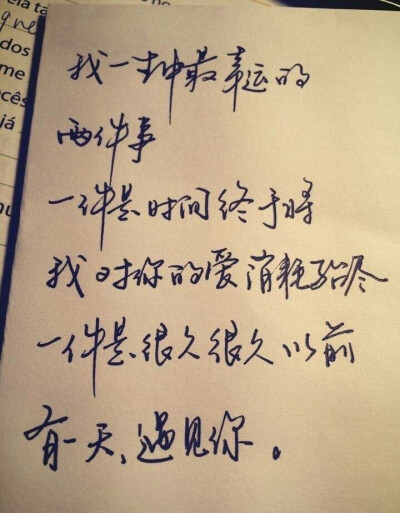 ela ta
gne
dos
me
cês
já
我一生中最幸运的
两件事
一件是时间终于将
我对你的爱消耗殆尽
一件是很久很久以前
有一天、遇见你。